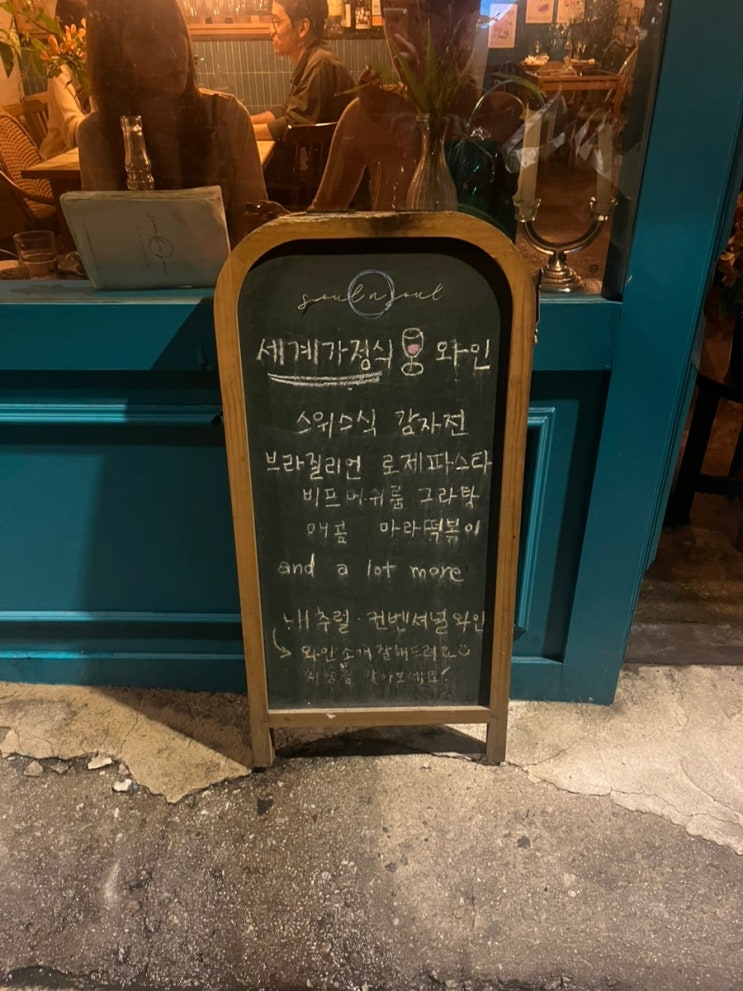 soul n soul
세계가정식 와인
스위스식 감자전
브라질리언 로제파스타
비프머쉬룸 그라탕
매콤 마라떡볶이
and a lot more
내추럴·컨벤셔널 와인
와인소개 잘해드려요
취향을 찾아보세요!